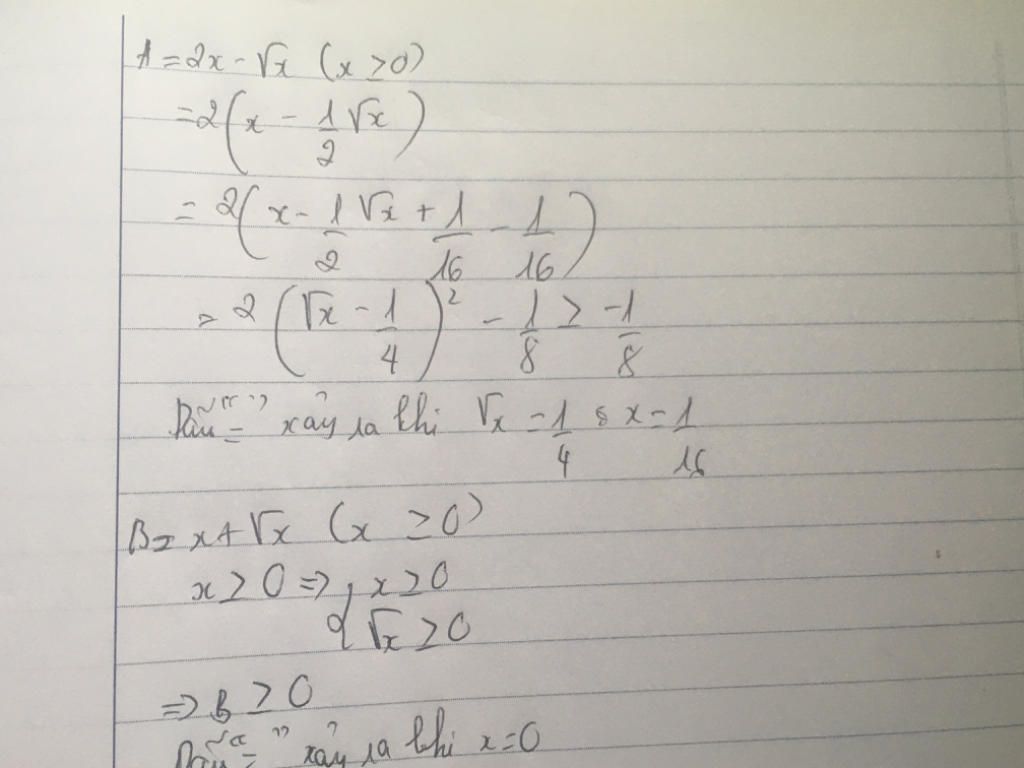 A = 2x - √x (x ≥ 0)
= 2(x - 1/2 √x)
= 2(x - 1/2 √x + 1/16 - 1/16)
= 2(√x - 1/4)² - 1/8 ≥ -1/8
Dấu "=" xảy ra khi √x = 1/4 ⇔ x = 1/16
B = x + √x (x ≥ 0)
x ≥ 0 => { x ≥ 0
√x ≥ 0
=> B ≥ 0
Dấu "=" xảy ra khi x = 0